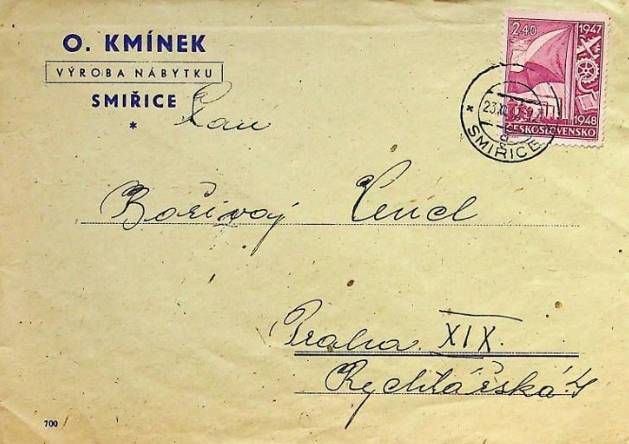 O. KMÍNEK
VÝROBA NÁBYTKU
SMIŘICE
*
Pan
Bořivoj Vencl
Praha XIX.
Rychtářská
2,40
1947
1948
ČESKOSLOVENSKO
23.XII
* SMIŘICE
700